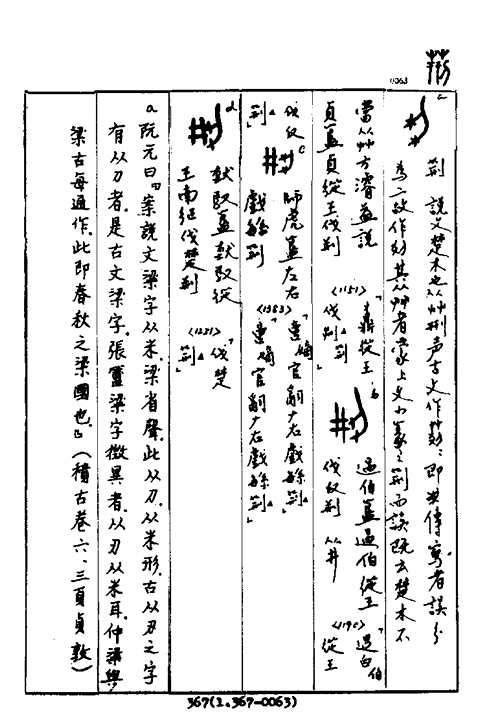 0063
荆 說文楚木也从艸刑声古文作𦮪𦮪即𣃼傳寫者誤分
為二故作𦮪其从艸者蒙上文小篆之荆而誤既云楚木不
當从艸方濬益說 <1151> 鼒從王 b 過伯𣪘過伯從王 <1190> 「過白伯
貞𣪘貞從王伐荆 伐荆 荆」 伐反荆 从井 從王
伐反 c 師虎𣪘左右 <1383> 「啻嫡官嗣ナ右戲緐荆」
荆」 戲緐荆 啻嫡官嗣ナ右戲緐荆」
d 㺇馭𣪘㺇馭從 <1231> 「伐楚
王南征伐楚荆 荆」
a 阮元曰「案說文梁字从米,梁省聲,此从刀、从米形,古从刃之字
有从刀者,是古文梁字,張𠷎梁字微異者,从刃从米耳,仲梁與
梁古每通作,此即春秋之梁國也。」(積古卷六、三頁貞敦)
367(1.367-0063)